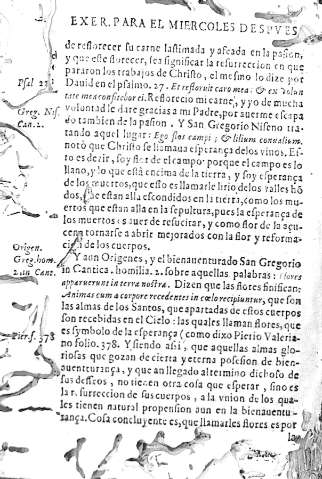 EXER. PARA EL MIERCOLES DESPVES
de reflorecer su carne lastimada y afeada en la pasion,
y que este florecer, sea significar la resurreccion en que
pararon los trabajos de Christo, el mesmo lo dize por
Psal 27.
Dauid en el psalmo. 27. Et refloruit caro mea: & ex volun
tate mea confitebor ei. Reflorecio mi carne, y yo de mucha
voluntad le dare gracias a mi Padre, por auerme escapa
Greg. Nis.
Can. 2.
do tambien de la pasion. Y San Gregorio Niseno tra-
tando aquel lugar: Ego flos campi; & lilium conualium.
notò que Christo se llamaua esperança de los viuos, Es-
to es dezir, soy flor del campo: porque el campo es lo
llano, y lo que està encima de la tierra, y soy esperança
de los muertos, que esso es llamarle lirio de los valles hõ
dos, que estan alla escondidos en la tierra, como los mu-
ertos que estan alla en la sepultura, pues la esperança de
los muertos es auer de resucitar, y como flor de la açu-
cena tornarse a abrir mejorados con la flor y reforma-
cion de los cuerpos.
Origen.
Greg. hom.
2. in Cant.
Y aun Origenes, y el bienauenturado San Gregorio
in Cantica. homilia. 2. sobre aquellas palabras: Flores
apparuerunt in terra nostra. Dizen que las flores sinifican:
Animas cum a corpore recedentes in cœlo recipiuntur, que son
las almas de los Santos, que apartadas de estos cuerpos
son recebidas en el Cielo: las quales llaman flores, que
Pier. f. 378
es symbolo de la esperança (como dixo Pierio Valeria-
no folio. 378. Y siendo assi, que aquellas almas glo-
riosas que gozan de cierta y eterna posesion de bien-
auenturança, y que an llegado al termino dichoso de
sus deseos, no tienen otra cosa que esperar, sino es
la resurreccion de sus cuerpos, a la vnion de los qua-
les tienen natural propension aun en la bienauentu-
rança. Cosa concluyente es, que llamarles flores es por
la